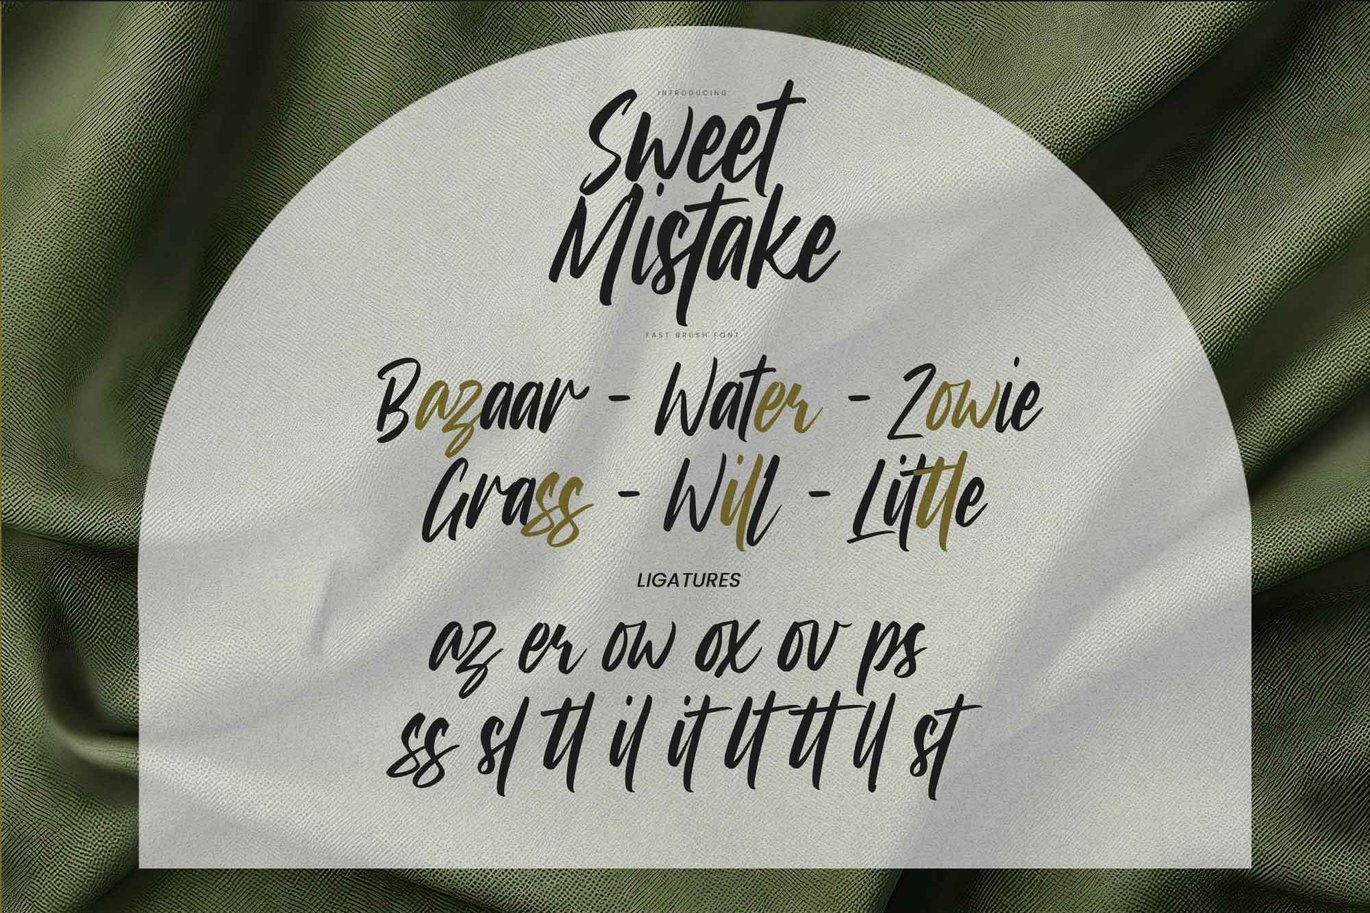 INTRODUCING
Sweet
Mistake
FAST BRUSH FONT
Bazaar - Water - Zowie
Grass - Will - Little
LIGATURES
az er ow ox ov ps
ss sl tl il it lt tt ll st